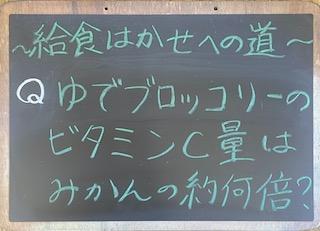 ～給食はかせへの道～
Qゆでブロッコリーの
ビタミンC量は
みかんの約何倍?